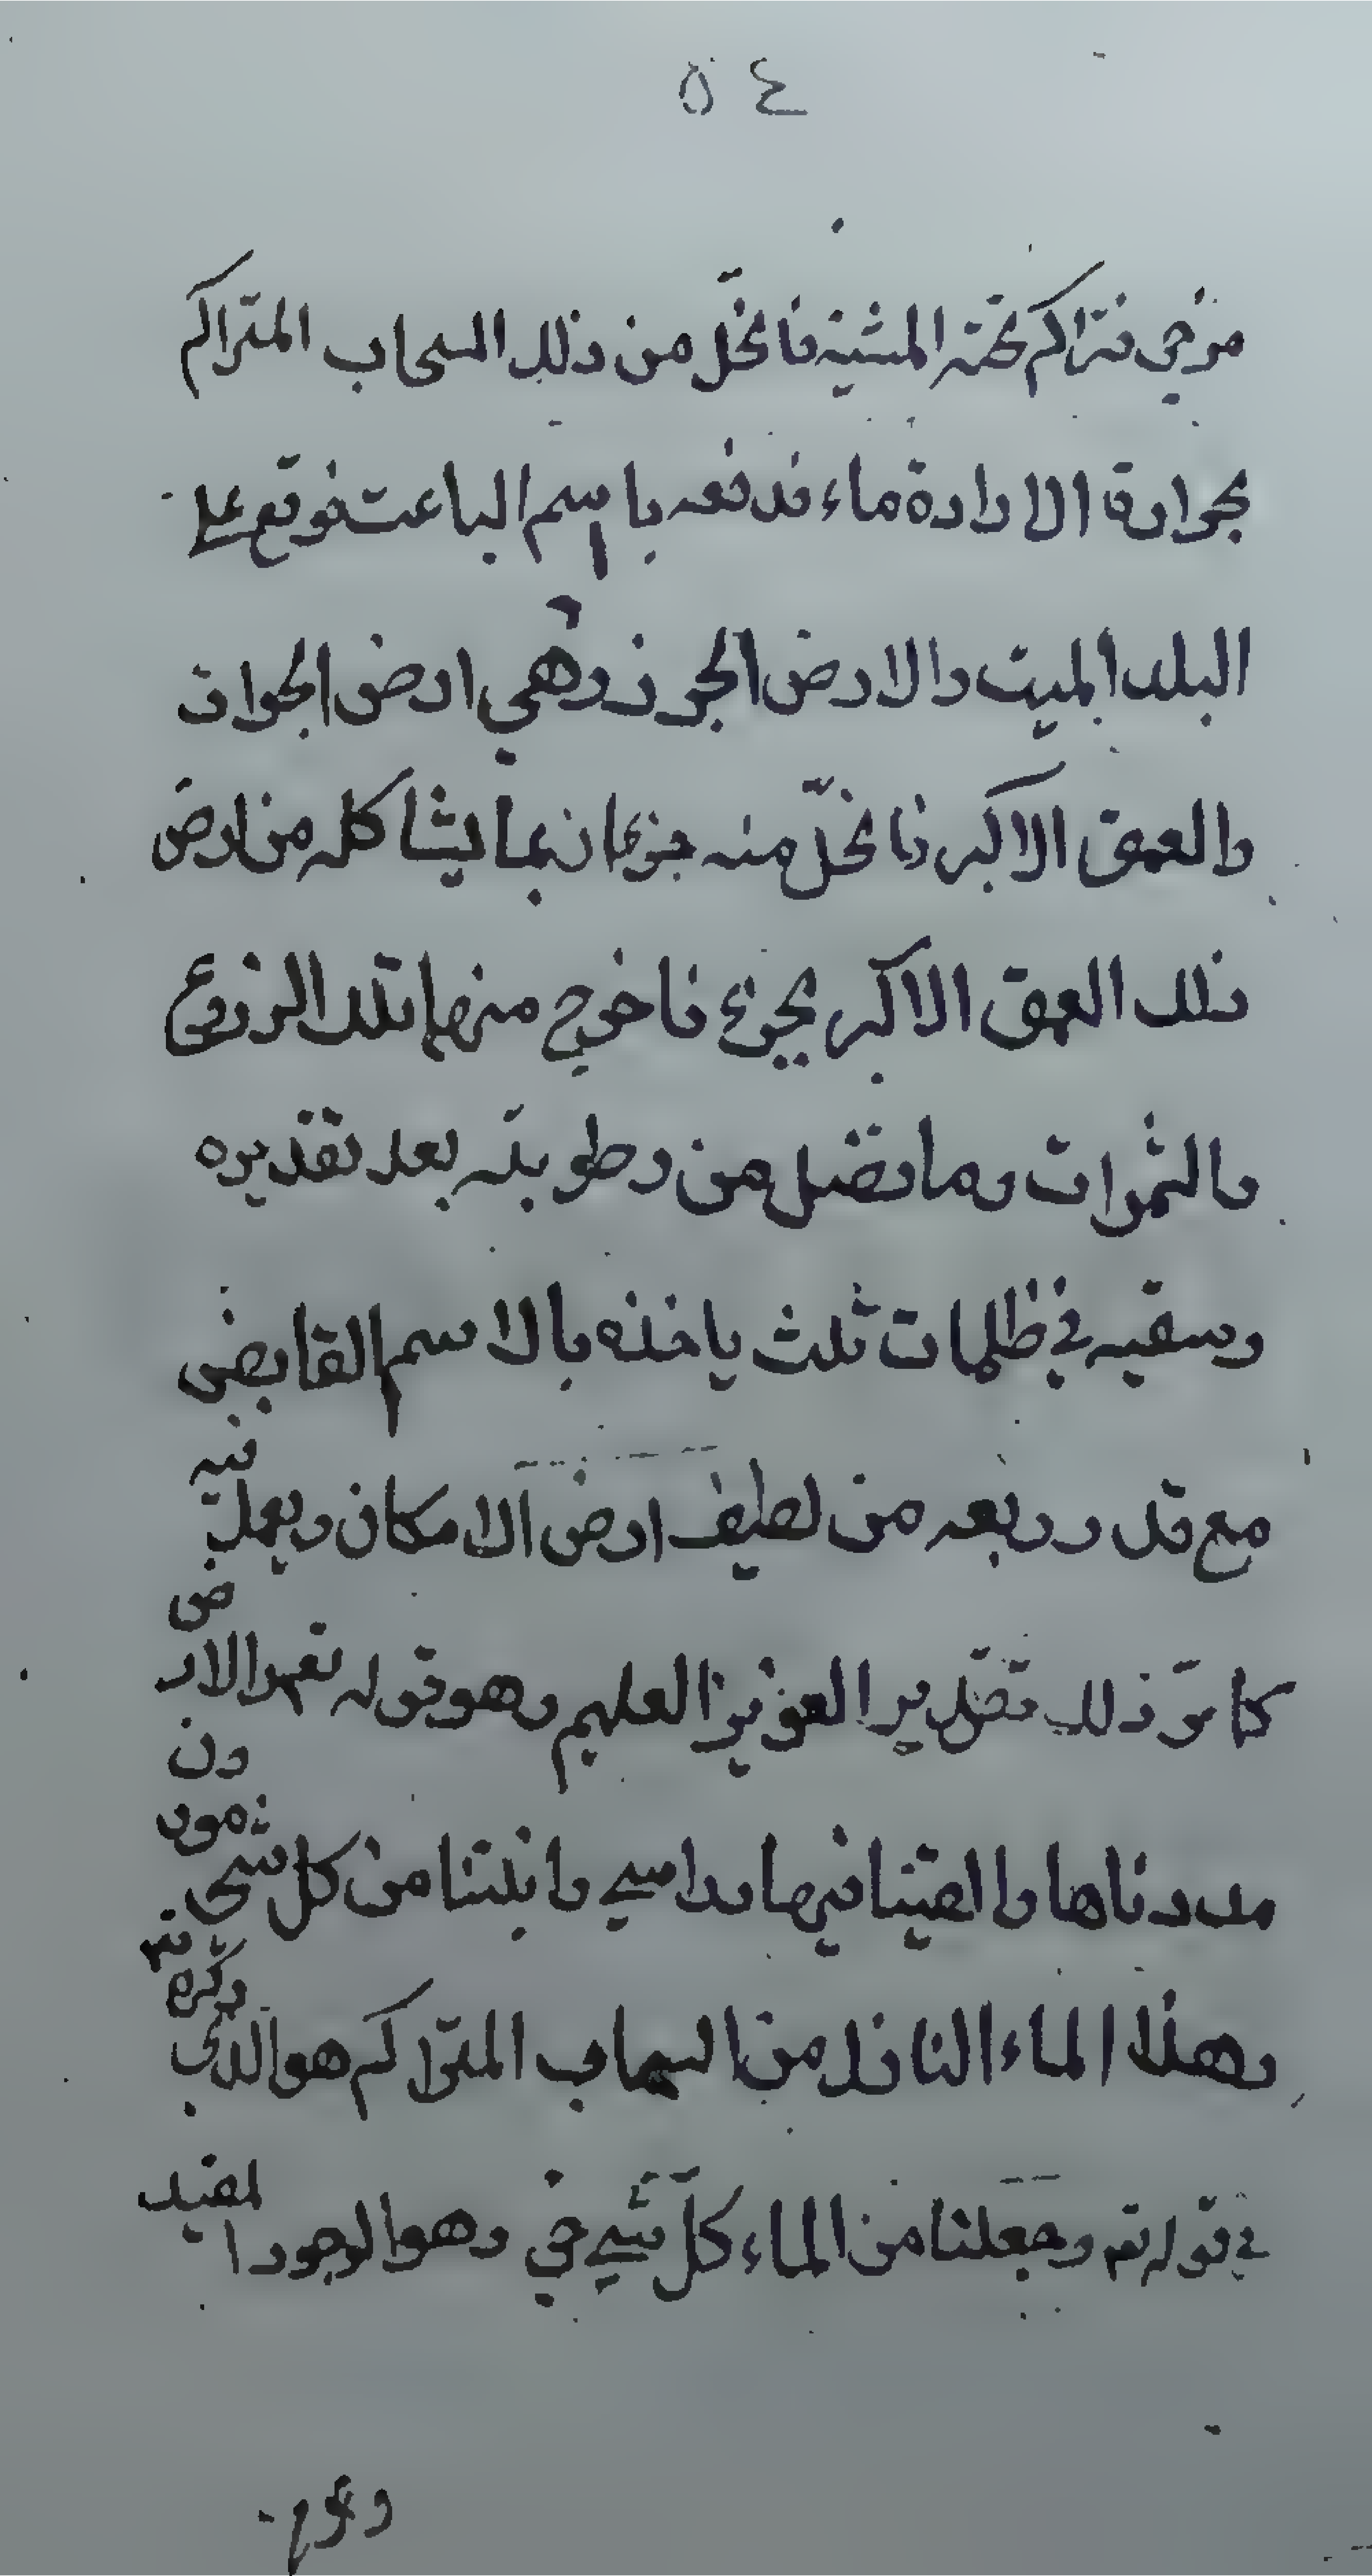 ٥٤
مزجى فتراكم تحته المشية فانحلّ من ذلك السحاب المتراكم
بحرارة الارادة ماء فدفعه باسم الباعث فوقع على
البلد الميت والارض الجرز وهي ارض الجواز
والعمق الاكبر فانحلّ منه جزءان بما يشاكله من ارض
ذلك العمق الاكبر بجزء فاخرج منهما تلك الزروع
والثمرات وما فضل من رطوبته بعد تقديره
وسقيه في ظلمات ثلث ياخذه بالاسم القابض
مع قدر ربعه من لطيف ارض الامكان ويعمل به فيه
كا مرّ ذلك تقدير العزيز العليم وهو قوله تعم والارض
مددناها والقينا فيها رواسي وانبتنا من كل شئ موزون
وهذا الماء النازل من السحاب المتراكم هو الذي ذكره
في قوله تعم وجعلنا من الماء كلّ شيء حي وهو الوجود المقيد